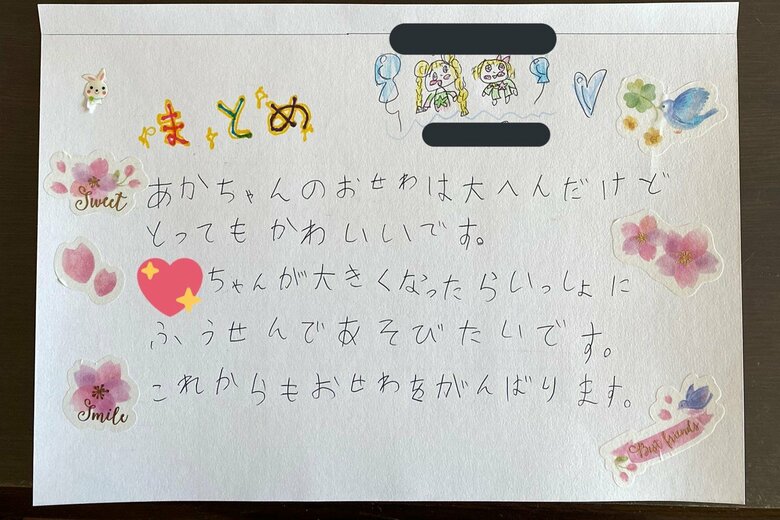 まとめ
あかちゃんのおせわは大へんだけど
とってもかわいいです。
ちゃんが大きくなったらいっしょに
ふうせんであそびたいです。
これからもおせわをがんばります。
Sweet
Smile
Best friends